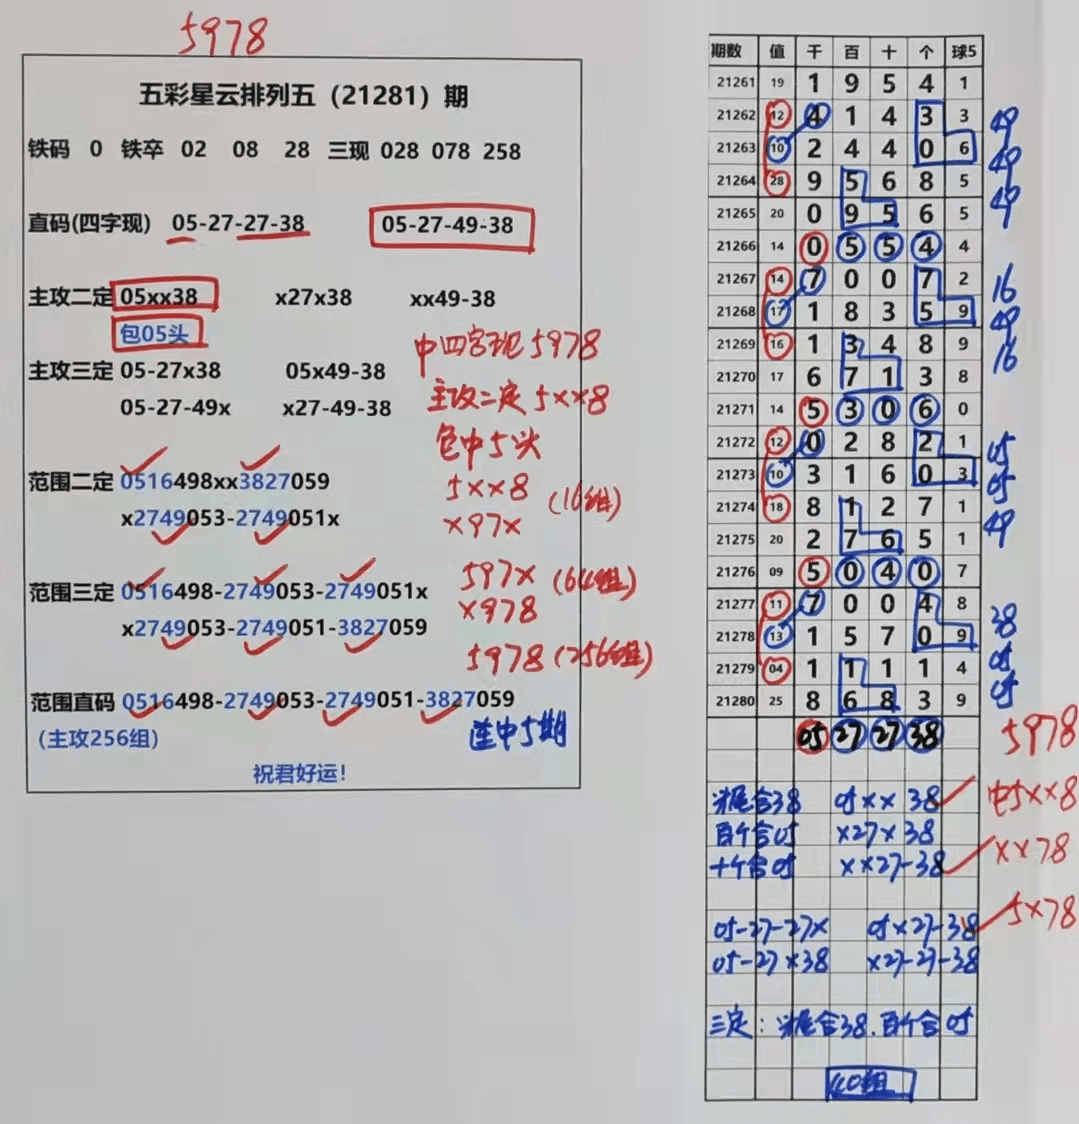 5978
五彩星云排列五（21281）期
铁码 0 铁卒 02 08 28 三现 028 078 258
直码(四字现) 05-27-27-38 05-27-49-38
主攻二定 05xx38 x27x38 xx49-38
包05头
中四字现5978
主攻三定 05-27x38 05x49-38
主攻二定5××8
05-27-49x x27-49-38
包中5头
范围二定 0516498xx3827059
5××8 (16组)
x2749053-2749051x
×97×
范围三定 0516498-2749053-2749051x
597× (64组)
x2749053-2749051-3827059
×978
5978 (256组)
范围直码 0516498-2749053-2749051-3827059
(主攻256组)
连中5期
祝君好运!
期数 值 千 百 十 个 球5
21261 19 1 9 5 4 1
21262 12 4 1 4 3 3 49
21263 10 2 4 4 0 6 49
21264 28 9 5 6 8 5 49
21265 20 0 9 5 6 5
21266 14 0 5 5 4 4
21267 14 7 0 0 7 2 16
21268 17 1 8 3 5 9 49
21269 16 1 3 4 8 9 16
21270 17 6 7 1 3 8
21271 14 5 3 0 6 0
21272 12 0 2 8 2 1 05
21273 10 3 1 6 0 3 05
21274 18 8 1 2 7 1 49
21275 20 2 7 6 5 1
21276 09 5 0 4 0 7
21277 11 7 0 0 4 8 38
21278 13 1 5 7 0 9 05
21279 04 1 1 1 1 4 05
21280 25 8 6 8 3 9
05 27 27 38 5978
头尾合38 05×× 38 中5××8
百个合05 ×27×38
十个合05 ××27-38 ××78
05-27-27× 05×27-38 5×78
05-27×38 ×27-27-38
三定：头尾合38.百个合05
40组